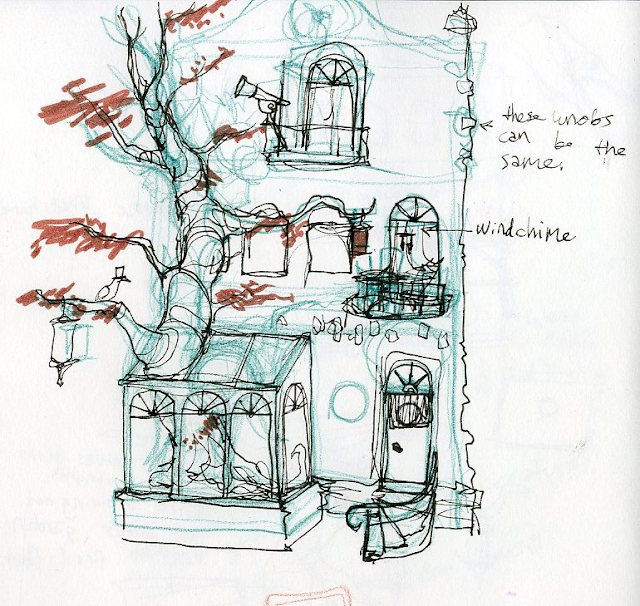 these knobs
can be the
same.
windchime